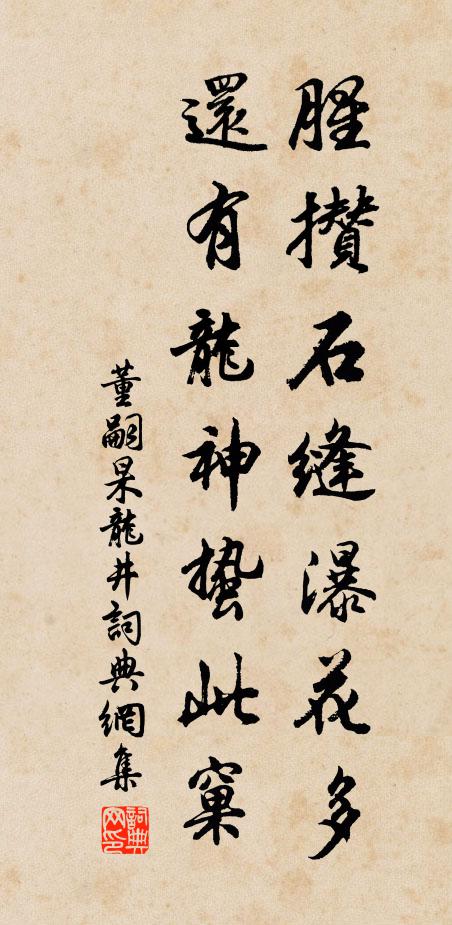 腥攢石縫瀑花多
還有龍神蟄此窠
董嗣杲龍井詞典網集
詞典网印